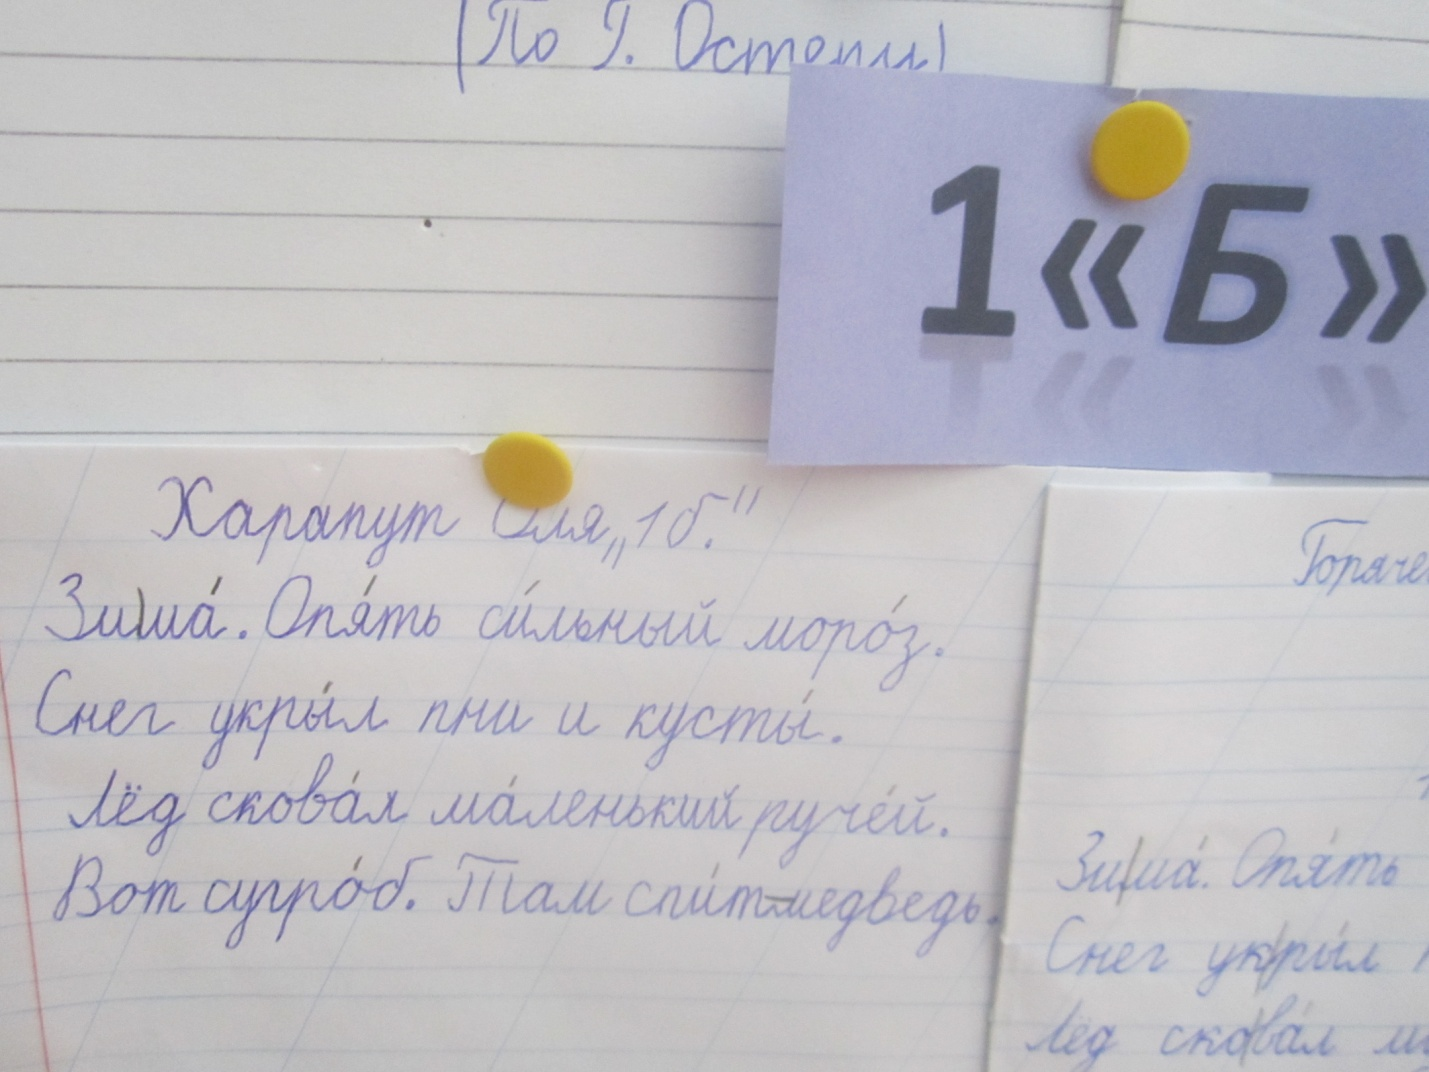 (По Г. Остеру)
1«Б»
Харапут Оля „1б."
Зима́. Опя́ть си́льный моро́з.
Снег укры́л пни и кусты́.
Лёд скова́л ма́ленький руче́й.
Вот сугро́б. Там спи́т медведь.
Зима́. Опя́ть
Снег укры́л
Лёд скова́л